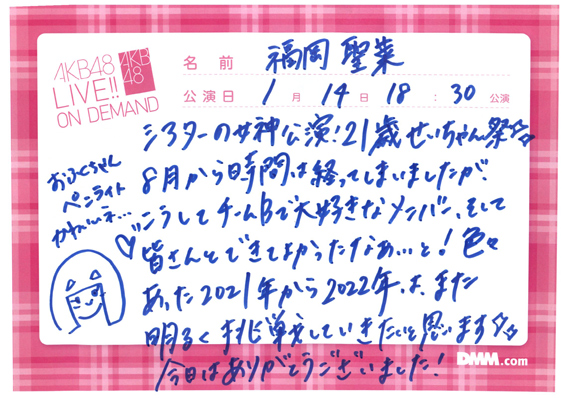 AKB48
LIVE!!
ON DEMAND
AKB
48
名前 福岡 聖菜
公演日 1月14日 18:30公演
シアターの女神公演!21歳せいちゃん祭☆☆
8月から時間は経ってしまいましたが
こうしてチームBで大好きなメンバー、そして
皆さんとできてよかったなぁ…と!色々
あった2021年から2022年は、また
明るく挑戦していきたいと思います☆☆
今日はありがとうございました!
おふくちゃん
ペンライト
かわいいネ…
DMM.com